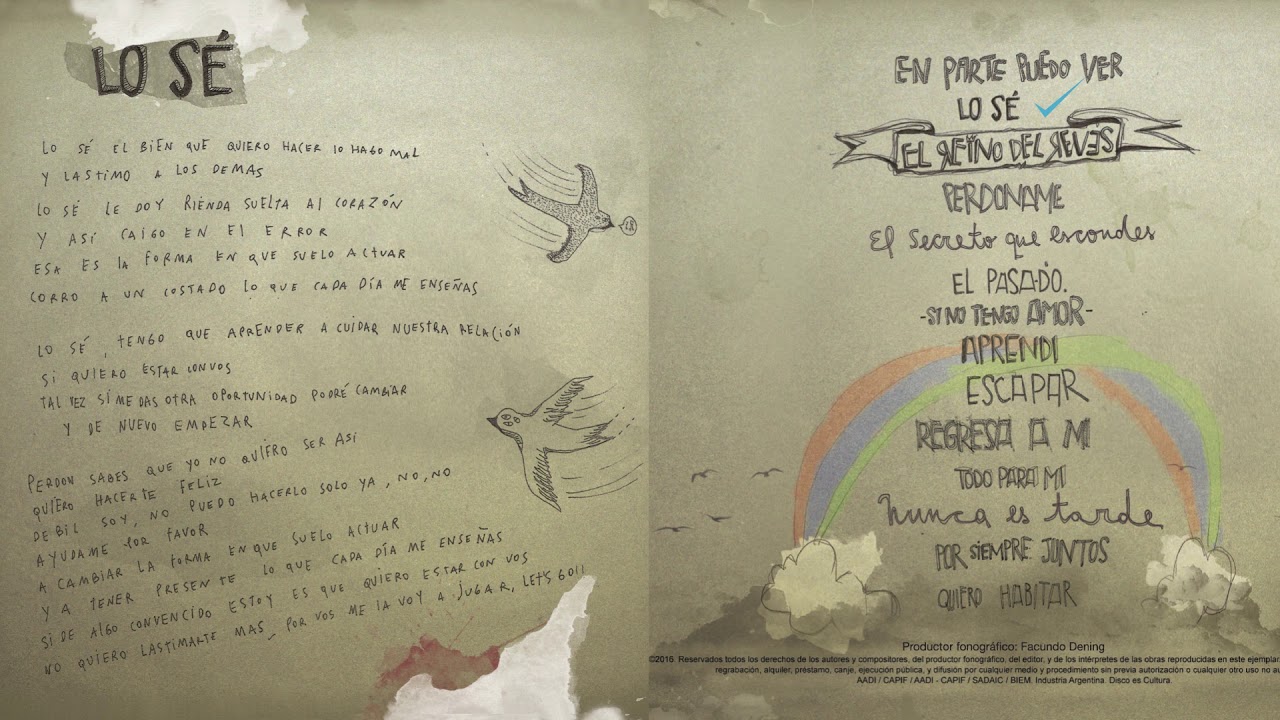 LO SÉ
LO SÉ EL BIEN QUE QUIERO HACER LO HAGO MAL
Y LASTIMO A LOS DEMAS
LO SÉ LE DOY RIENDA SUELTA AL CORAZÓN
Y ASÍ CAIGO EN EL ERROR
ESA ES LA FORMA EN QUE SUELO ACTUAR
CORRO A UN COSTADO LO QUE CADA DÍA ME ENSEÑAS
LO SÉ, TENGO QUE APRENDER A CUIDAR NUESTRA RELACIÓN
SI QUIERO ESTAR CON VOS
TAL VEZ SI ME DAS OTRA OPORTUNIDAD PODRÉ CAMBIAR
Y DE NUEVO EMPEZAR
PERDON SABES QUE YO NO QUIERO SER ASI
QUIERO HACERTE FELIZ
DEBIL SOY, NO PUEDO HACERLO SOLO YA, NO, NO
AYUDAME POR FAVOR
A CAMBIAR LA FORMA EN QUE SUELO ACTUAR
Y A TENER PRESENTE LO QUE CADA DÍA ME ENSEÑAS
SI DE ALGO CONVENCIDO ESTOY ES QUE QUIERO ESTAR CON VOS
NO QUIERO LASTIMARTE MAS, POR VOS ME LA VOY A JUGAR, LET'S GO!!
EN PARTE PUEDO VER
LO SÉ
EL REINO DEL REVÉS
PERDONAME
El secreto que escondes
EL PASADO.
-SI NO TENGO AMOR-
APRENDI
ESCAPAR
REGRESA A MI
TODO PARA MI
Nunca es tarde
POR SIEMPRE JUNTOS
QUIERO HABITAR
Productor fonográfico: Facundo Dening
©2016. Reservados todos los derechos de los autores y compositores, del productor fonográfico, del editor, y de los intérpretes de las obras reproducidas en este ejemplar
regrabación, alquiler, préstamo, canje, ejecución pública, y difusión por cualquier medio y procedimiento sin previa autorización o cualquier otro uso no au
AADI / CAPIF / AADI - CAPIF / SADAIC / BIEM. Industria Argentina. Disco es Cultura.